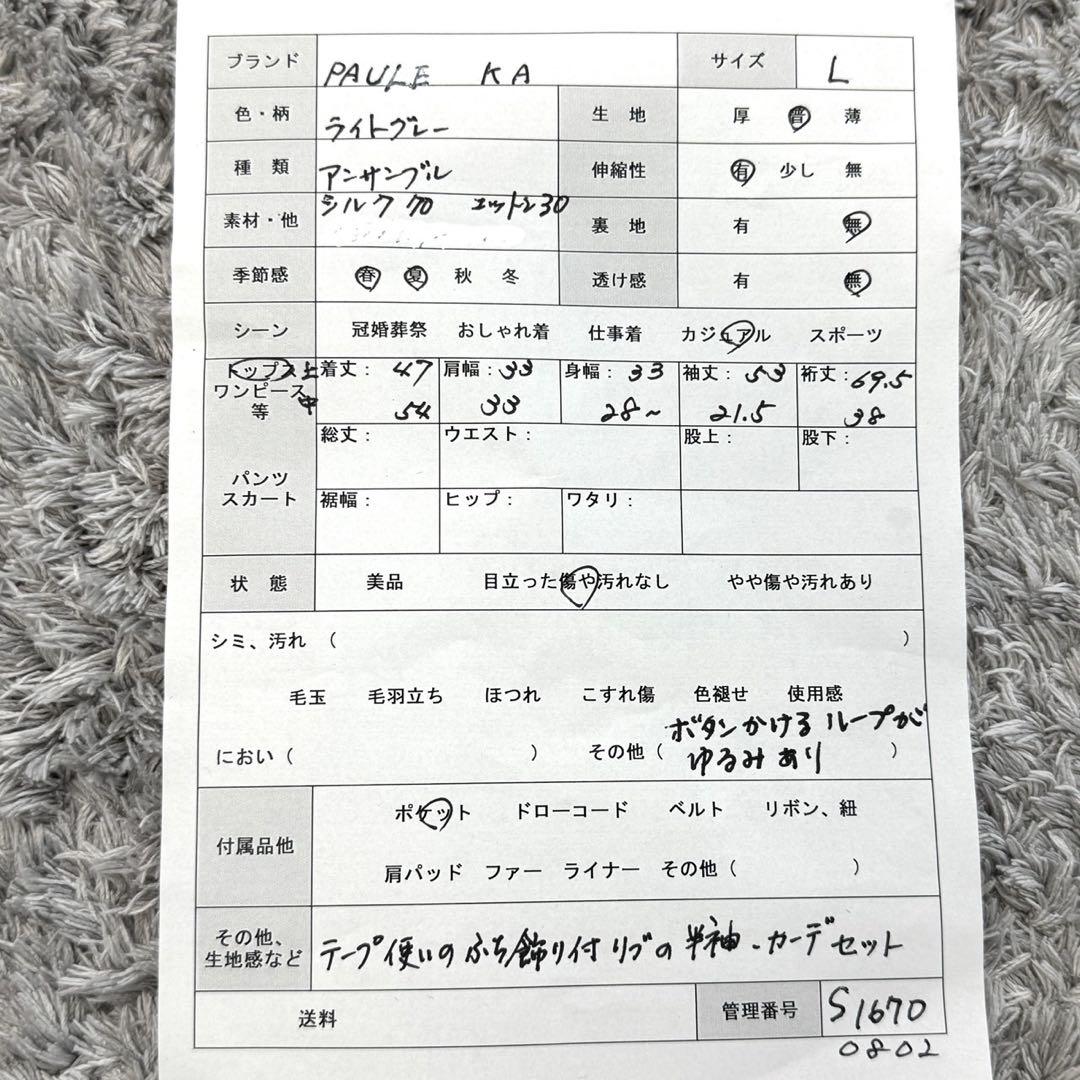 ブランド PAULE KA サイズ L
色・柄 ライトグレー 生 地 厚 普 薄
種 類 アンサンブル 伸縮性 有 少し 無
素材・他 シルク70 コットン30 裏 地 有 無
季節感 春 夏 秋 冬 透け感 有 無
シーン 冠婚葬祭 おしゃれ着 仕事着 カジュアル スポーツ
トップス上 着丈: 47 肩幅: 33 身幅: 33 袖丈: 53 裄丈: 69.5
ワンピース中 54 33 28~ 21.5 38
等
総丈: ウエスト: 股上: 股下:
パンツ
スカート 裾幅: ヒップ: ワタリ:
状 態 美品 目立った傷や汚れなし やや傷や汚れあり
シミ、汚れ ( )
毛玉 毛羽立ち ほつれ こすれ傷 色褪せ 使用感
ボタンかけるループが
におい ( ) その他 ( ゆるみあり )
ポケット ドローコード ベルト リボン、紐
付属品他
肩パッド ファー ライナー その他 ( )
その他、
生地感など テープ使いのふち飾り付リブの半袖・カーデセット
送料 管理番号 S1670
0802